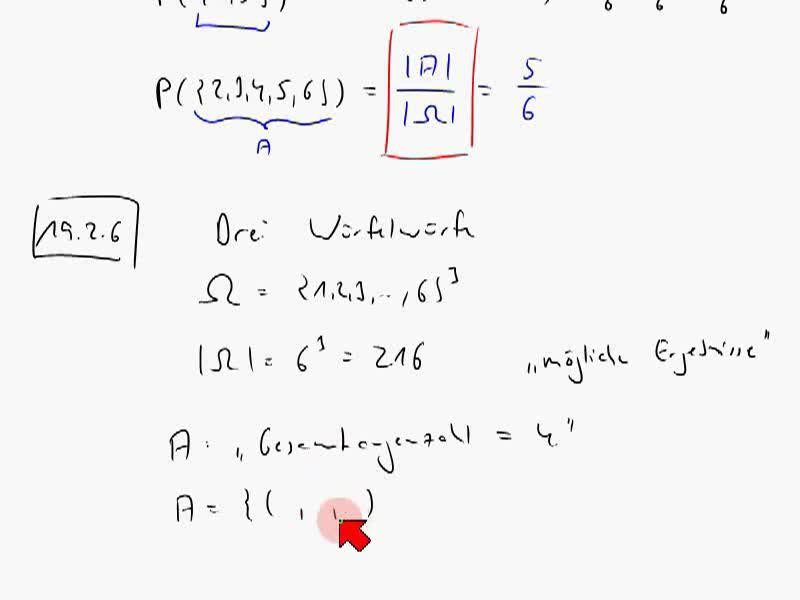 6 6 6
P({2,3,4,5,6}) = |A| / |Ω| = 5/6
A
19.2.6 Drei Würfelwürfe
Ω = {1,2,3,..,6}³
|Ω| = 6³ = 216 „mögliche Ergebnisse"
A: „Gesamtaugenzahl = 4"
A = {( , , )